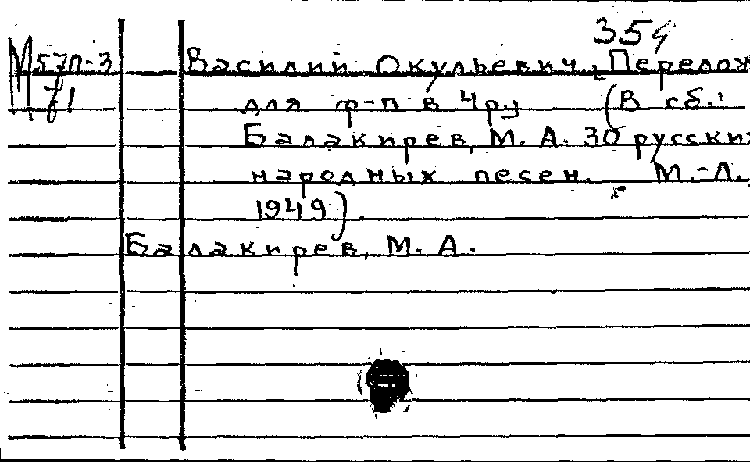 354
М57п-3 Василий Окульевич. Перелож
71 для ф-п в 4 ру (В сб.:
Балакирев, М. А. 30 русских
народных песен. М.-Л.,
1949).
Балакирев, М. А.